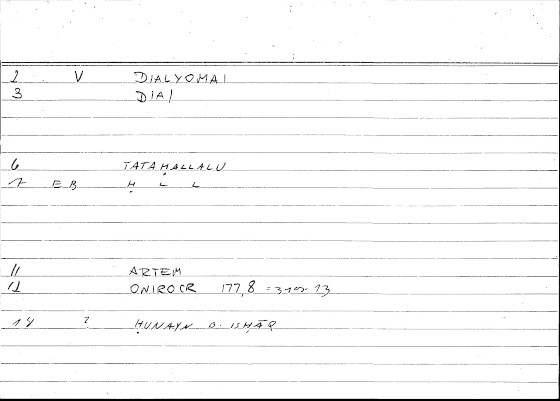 2 V DIALYOMAI
3 DIA/
6 TATAḤALLALU
7 EB Ḥ L L
11 ARTEM
12 ONIROCR 177,8 = 13
14 ? ḤUNAYN B. ISḤĀQ